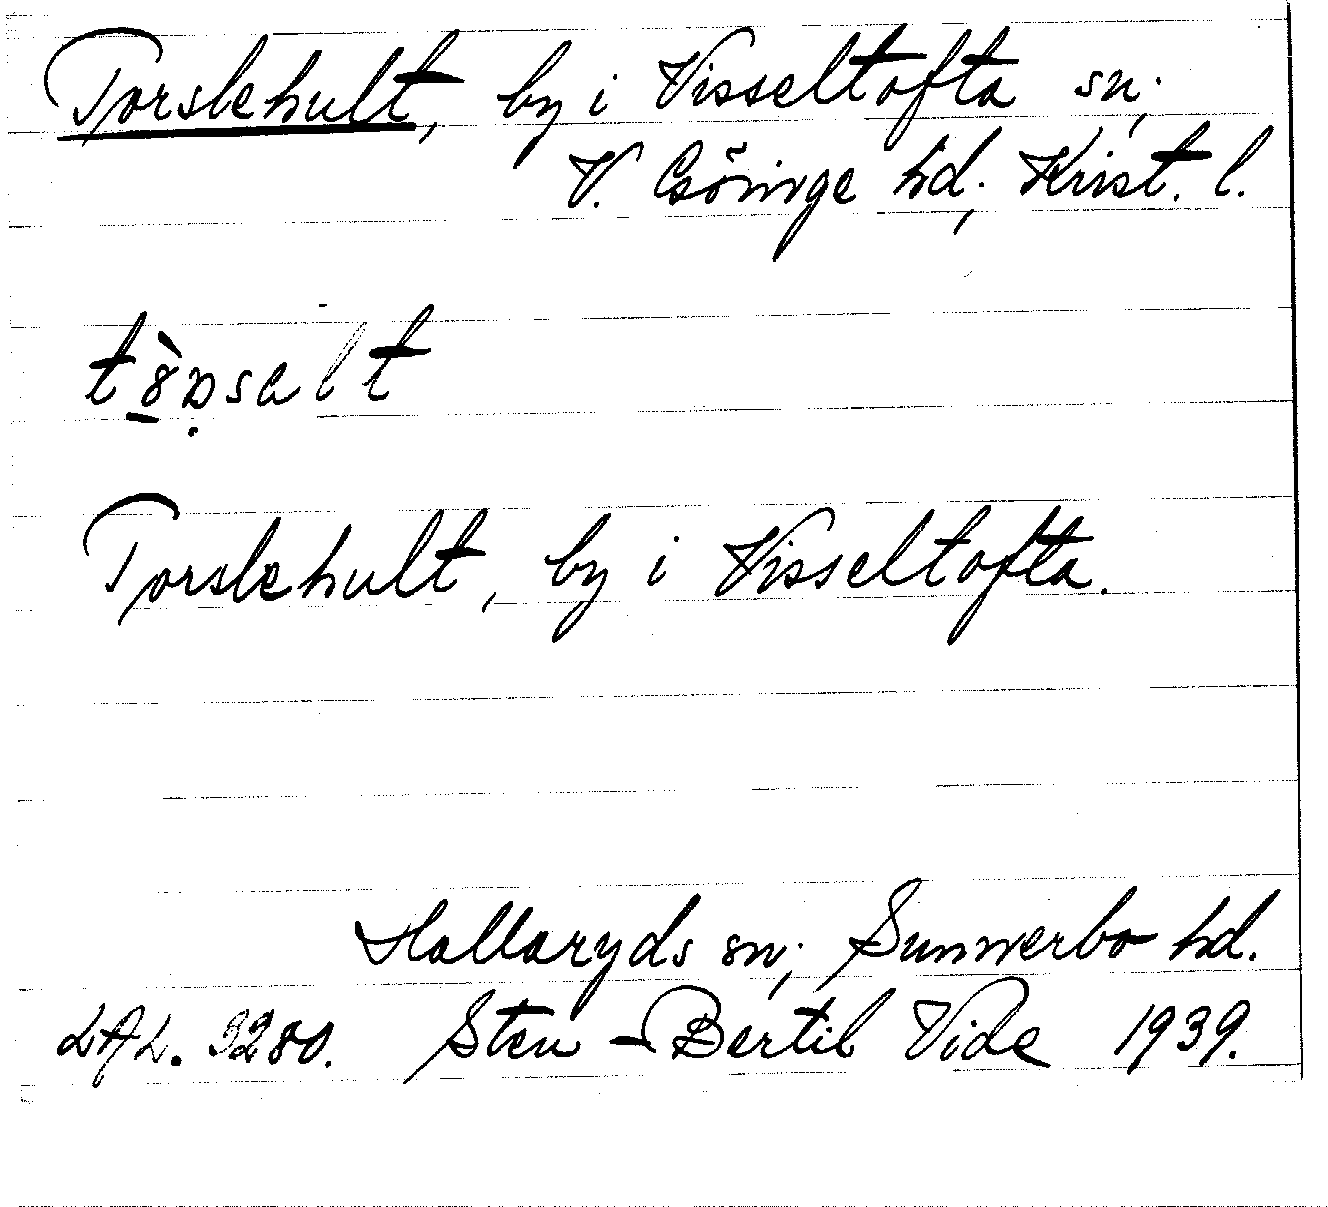 Torslehult, by i Visseltofta sn,
V. Göinge hd, Krist. l.
Torslehult, by i Visseltofta.
Hallaryds sn, Sunnerbo hd.
LAL. 3280. Sten-Bertil Vide 1939.